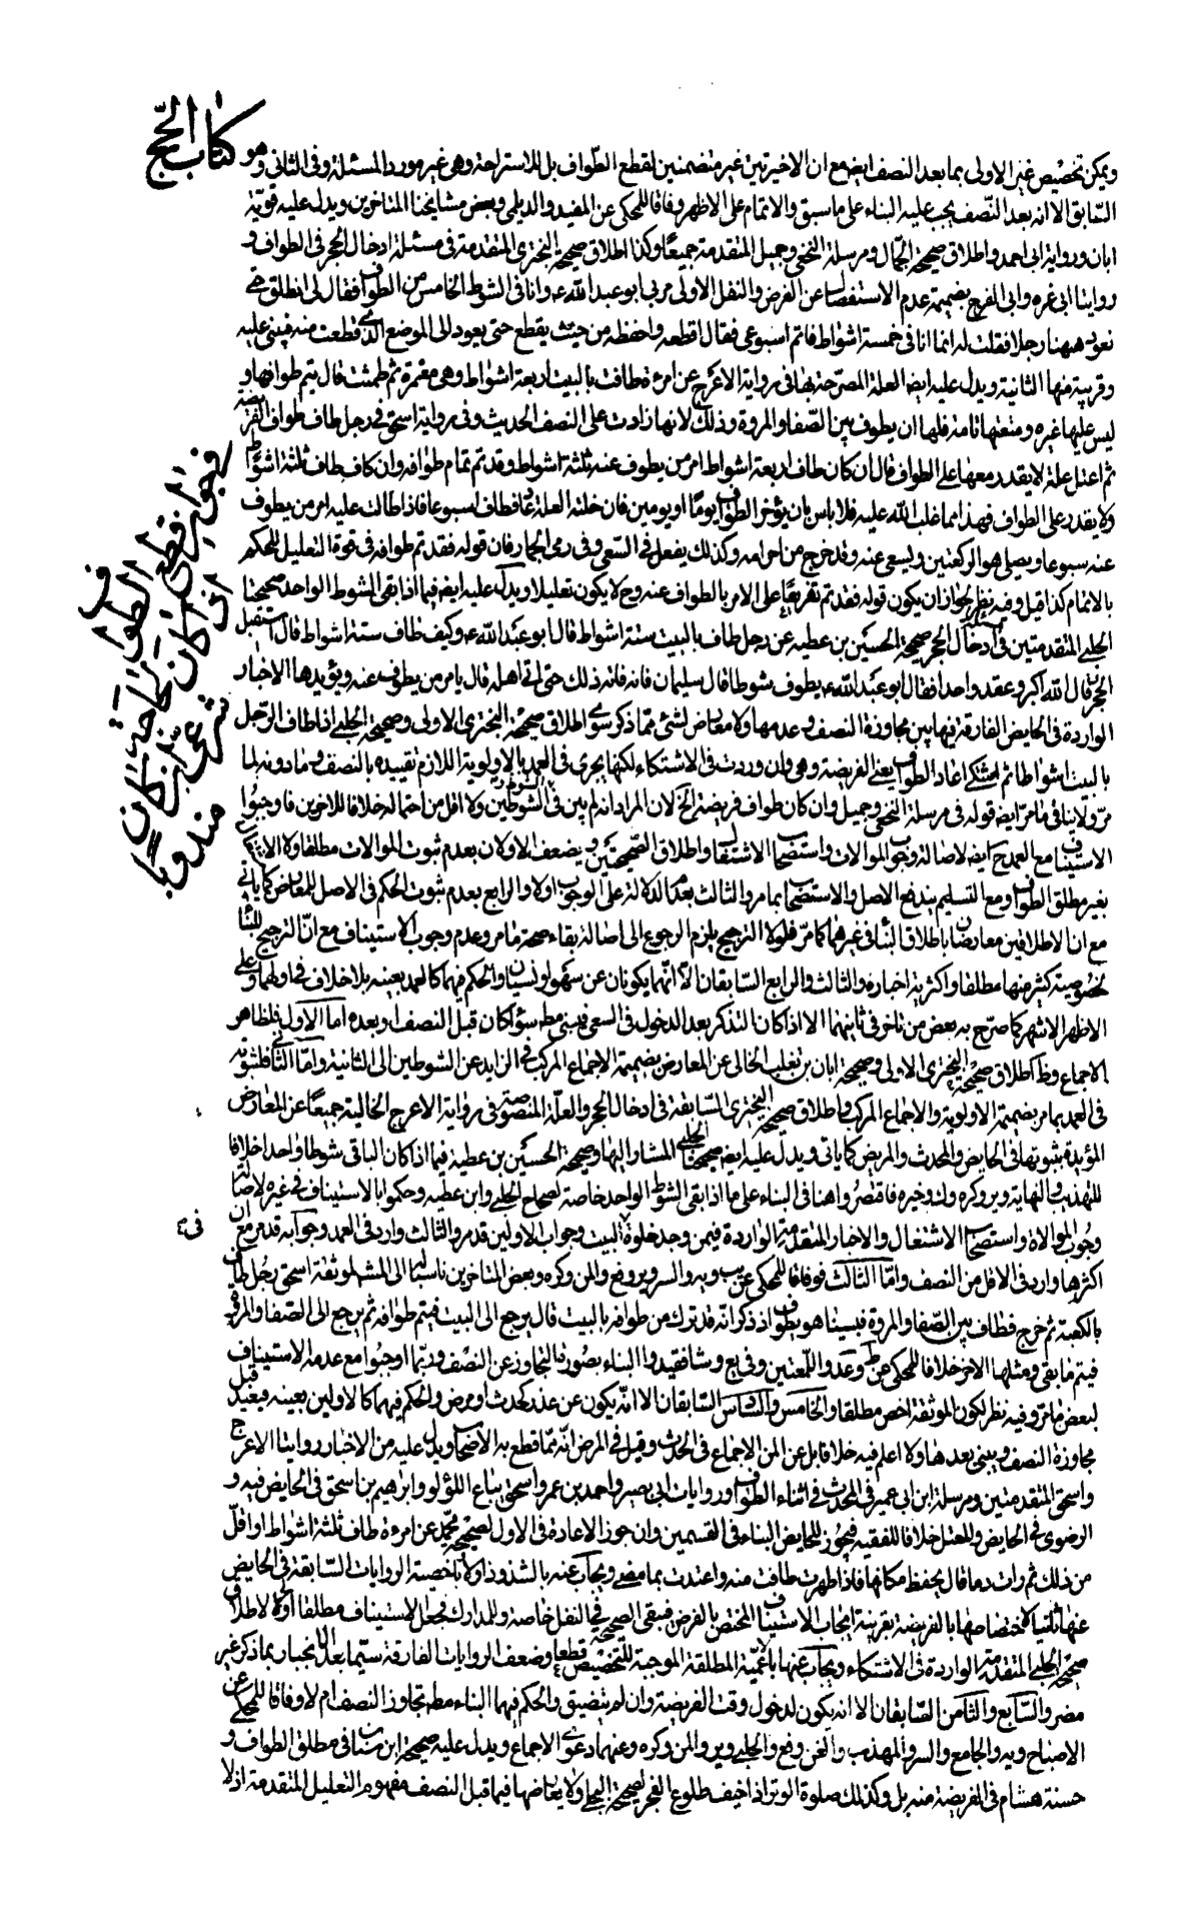 كتاب الحج
ويمكن تخصيص غير الاولى بما بعد النصف ايضا مع ان الاخيرتين غير متضمنين لقطع الطواف بل للاستراحة وهى غير مورد المسئلة وفى الثانى وهو
السابق الا انه بعد النصف يجب عليه البناء على ما سبق والاتمام على الاظهر وفاقا للمحكى عن المفيد والديلمى وبعض مشايخنا المتاخرين ويدل عليه قوية
ابان ورواية ابى احمد واطلاق صحيحة الجمال ومرسلة النخعى وجميل المتقدمة جميعا وكذا اطلاق صحيحة البخترى المتقدمة فى مسئلة ادخال الحجر فى الطواف و
روايتا ابى غره وابى الفرج بضميمة عدم الاستفصال عن الفرض والنفل الاولى مر بى ابو عبد الله ع وانا فى الشوط الخامس من الطواف فقال لى انطلق حتى
نعود ههنا رجلا فقلت له انما انا فى خمسة اشواط فاتم اسبوعى فقال اقطعه واحفظه من حيث يقطع حتى يعود الى الموضع الذى قطعت منه فتبنى عليه
وقريبة منها الثانية ويدل عليه ايضا العلة المصرحة بها فى رواية الاعرج عن امرءة طافت بالبيت اربعة اشواط وهى معتمرة ثم طمثت قال يتم طوافها و
ليس عليها غيره ومتعتها تامة فلها ان يطوف بين الصفا والمروة وذلك لانها زادت على النصف الحديث وفى رواية اسحق فى رجل طاف طواف الفريضة
ثم اعتل علة لا يقدر معها على الطواف قال ان كان طاف اربعة اشواط امر من يطوف عنه ثلثة اشواط وقد تم تمام طوافه وان كان طاف ثلثة اشواط
ولا يقدر على الطواف فهذا مما غلب الله عليه فلا باس بان يؤخر الطواف يوما او يومين فان خلته العلة عاد فطاف اسبوعا فاذا طالت عليه امر من يطوف
عنه سبوعا ويصلى هو الركعتين ويسعى عنه وقد خرج من احرامه وكذلك يفعل فى السعى وفى رمى الجمار فان قوله فقد تم طوافه فى قوة التعليل للحكم
بالاتمام كذا قيل وفيه نظر لجواز ان يكون قوله فقد تم تفريعا على الامر بالطواف عنه وح لا يكون تعليلا ويدل عليه ايضا فيما اذا بقى الشوط الواحد صحيحتا
الحلبى المتقدمتين فى ادخال الحجر صحيحة الحسين بن عطيه عن رجل طاف بالبيت ستة اشواط قال ابو عبد الله ع وكيف طاف ستة اشواط قال استقبل
الحجر قال الله اكبر وعقد واحدا فقال ابو عبد الله ع يطوف شوطا قال سليمان فانه فاته ذلك حتى اتى اهله قال يامر من يطوف عنه ويؤيدها الاخبار
الواردة فى الحايض الفارقة فيها بين مجاوزة النصف وعدمها ولا معارض لشئ مما ذكر سوى اطلاق صحيحة البخترى الاولى وصحيحة الحلبى اذا طاف الرجل
بالبيت اشواطا ثم اشتكى اعاد الطواف يعنى الفريضة وهى وان وردت فى الاشتكاء لكنها يجرى فى العمد بالاولوية اللازم تقييده بالنصف وما دونه لما
مر ولا ينافى ما مر ايضا قوله فى مرسلة النخعى وجميل وان كان طواف فريضة الخ لان المراد انه لم يبن فى الشوط والشوطين ولا اقل من احتماله خلافا للاخرين فاوجبوا
الاستيناف مع العمد ح ايضا لاصالة وجوب الموالات واستصحاب الاشتغال واطلاق الصحيحتين ويضعف الاولان بعدم ثبوت الموالات مطلقا ولا الاشتغال
بغير مطلق الطواف ومع التسليم يندفع الاصل والاستصحاب بما مر والثالث بعدم الدلالة على الوجوب اولا والرابع بعدم ثبوت الحكم فى الاصل للمعارض كما ياتى
مع ان الاطلاقين معارضان باطلاق البناء فى غيرهما كما مر فلولا الترجيح يلزم الرجوع الى اصالة بقاء صحة ما مر وعدم وجوب الاستيناف مع ان الترجيح للبناء
لخصوصية كثير منها مطلقا واكثرية اخباره والثالث والرابع السابقان الا انهما يكونان عن سهو او نسيان والحكم فيهما كالعمد بعينه بلا خلاف فى اولهما وعلى
الاظهر الاشهر كما صرح به بعض من تاخر فى ثانيهما الا اذا كان التذكر بعد الدخول فى السعى فيبنى مط سواء كان قبل النصف او بعده اما الاول فلظاهر
الاجماع وظ اطلاق صحيحة البخترى الاولى وصحيحة ابان بن تغلب الخالى عن المعارض بضميمة الاجماع المركب فى الزايد عن الشوطين الى الثانية واما الثانى فلثبوته
فى العمد بما مر بضميمة الاولوية والاجماع المركب واطلاق صحيحة البخترى السابقة فى ادخال الحجر والعلة المنصوصة فى رواية الاعرج الخالية جميعا عن المعارض
المؤيدة بثبوتها فى الحايض والمحدث والمريض كما ياتى ويدل عليه ايضا صحيحتا الحلبى المشار اليها وصحيحة الحسين بن عطية فيما اذا كان الباقى شوطا واحدا خلافا
للتهذيب والنهاية وير وكره ولد وخيره فاقتصروا هنا فى البناء على ما اذا بقى الشوط الواحد خاصة لصحاح الحلبى وابن عطيه وحكموا بالاستيناف فى غيره لاصالتى
وجوب الموالاة واستصحاب الاشتغال والاخبار المتقدمة الواردة فيمن وجد خلوة البيت وجواب الاولين قد مر والثالث وارد فى العمد وجوابه قد مر مع ان
اكثرها وارد فى الاقل من النصف واما الثالث فوفاقا للمحكى عن يب ويه والسر وير وفع والمن وكره وبعض المتاخرين ناسبا الى المشهور لموثقة اسحق رجل طاف
بالكعبة ثم خرج فطاف بين الصفا والمروة فبينا هو يطوف اذ ذكر انه قد ترك من طوافه بالبيت قال يرجع الى البيت فيتم طوافه ثم يرجع الى الصفا والمروة
فيتم ما بقى ومثلها الاخر خلافا للمحكى عن ط وعد واللمعتين وفى يع وشا فقيدوا البناء بصورة التجاوز عن النصف وربما اوجبوا مع عدمه الاستيناف
لبعض ما مر وفيه نظر لكون الموثقة اخص مطلقا والخامس والسادس السابقان الا انه يكون عن عذر كحدث او مرض والحكم فيهما كالاولين بعينه فيعيد قبل
مجاوزة النصف ويبنى بعدها ولا اعلم فيه خلافا بل عن المن الاجماع فى الحدث وقيل فى المرض انه مما قطع به الاصحاب ويدل عليه من الاخبار روايتا الاعرج
واسحق المتقدمتين ومرسلة ابن ابى عمير فى المحدث فى اثناء الطواف وروايات ابى بصير واحمد بن عمر واسحق بياع اللؤلؤ وابراهيم بن اسحق فى الحايض فيه و
الرضوى فى الحايض والمعتل خلافا للفقيه فيجوز للحايض البناء فى القسمين وان جوز الاعادة فى الاول لصحيحة محمد عن امرءة طاف ثلثة اشواط او اقل
من ذلك ثم رات دما قال يحفظ مكانها فاذا طهرت طافت منه واعتدت بما مضى ويجاب عنه بالشذوذ اولا وباخصية الروايات السابقة فى الحايض
عنها ثانيا لاختصاصها بالفريضة بقرينة ايجاب الاستيناف المختص بالفرض فيبقى الصحيحة فى النفل خاصة وللمدارك فجعل الاستيناف مطلقا اولى لاطلاق
صحيحة الحلبى المتقدمة الواردة فى الاشتكاء ويجاب عنها باعمية المطلقة الموجبة للتخصيص قطعا وضعف الروايات الفارقة سيما بعد الانجبار بما ذكر غير
مضر والسابع والثامن الصابقان الا انه يكون لدخول وقت الفريضة وان لم يتضيق والحكم فيهما البناء مط تجاوز النصف ام لا وفاقا للمحكى عن
الاصباح ويه والجامع والسر والمهذب والغن وفع والحلبى وير والمن وكره وعنهما دعوى الاجماع ويدل عليه صحيحة ابن سنان فى مطلق الطواف و
حسنة هشام فى الفريضة منه بل وكذلك صلوة الوتر اذا خيف طلوع الفجر لصحيحة البجلى ولا يعارضها فيما قبل النصف مفهوم التعليل المتقدمة اذ لا
فى ٤